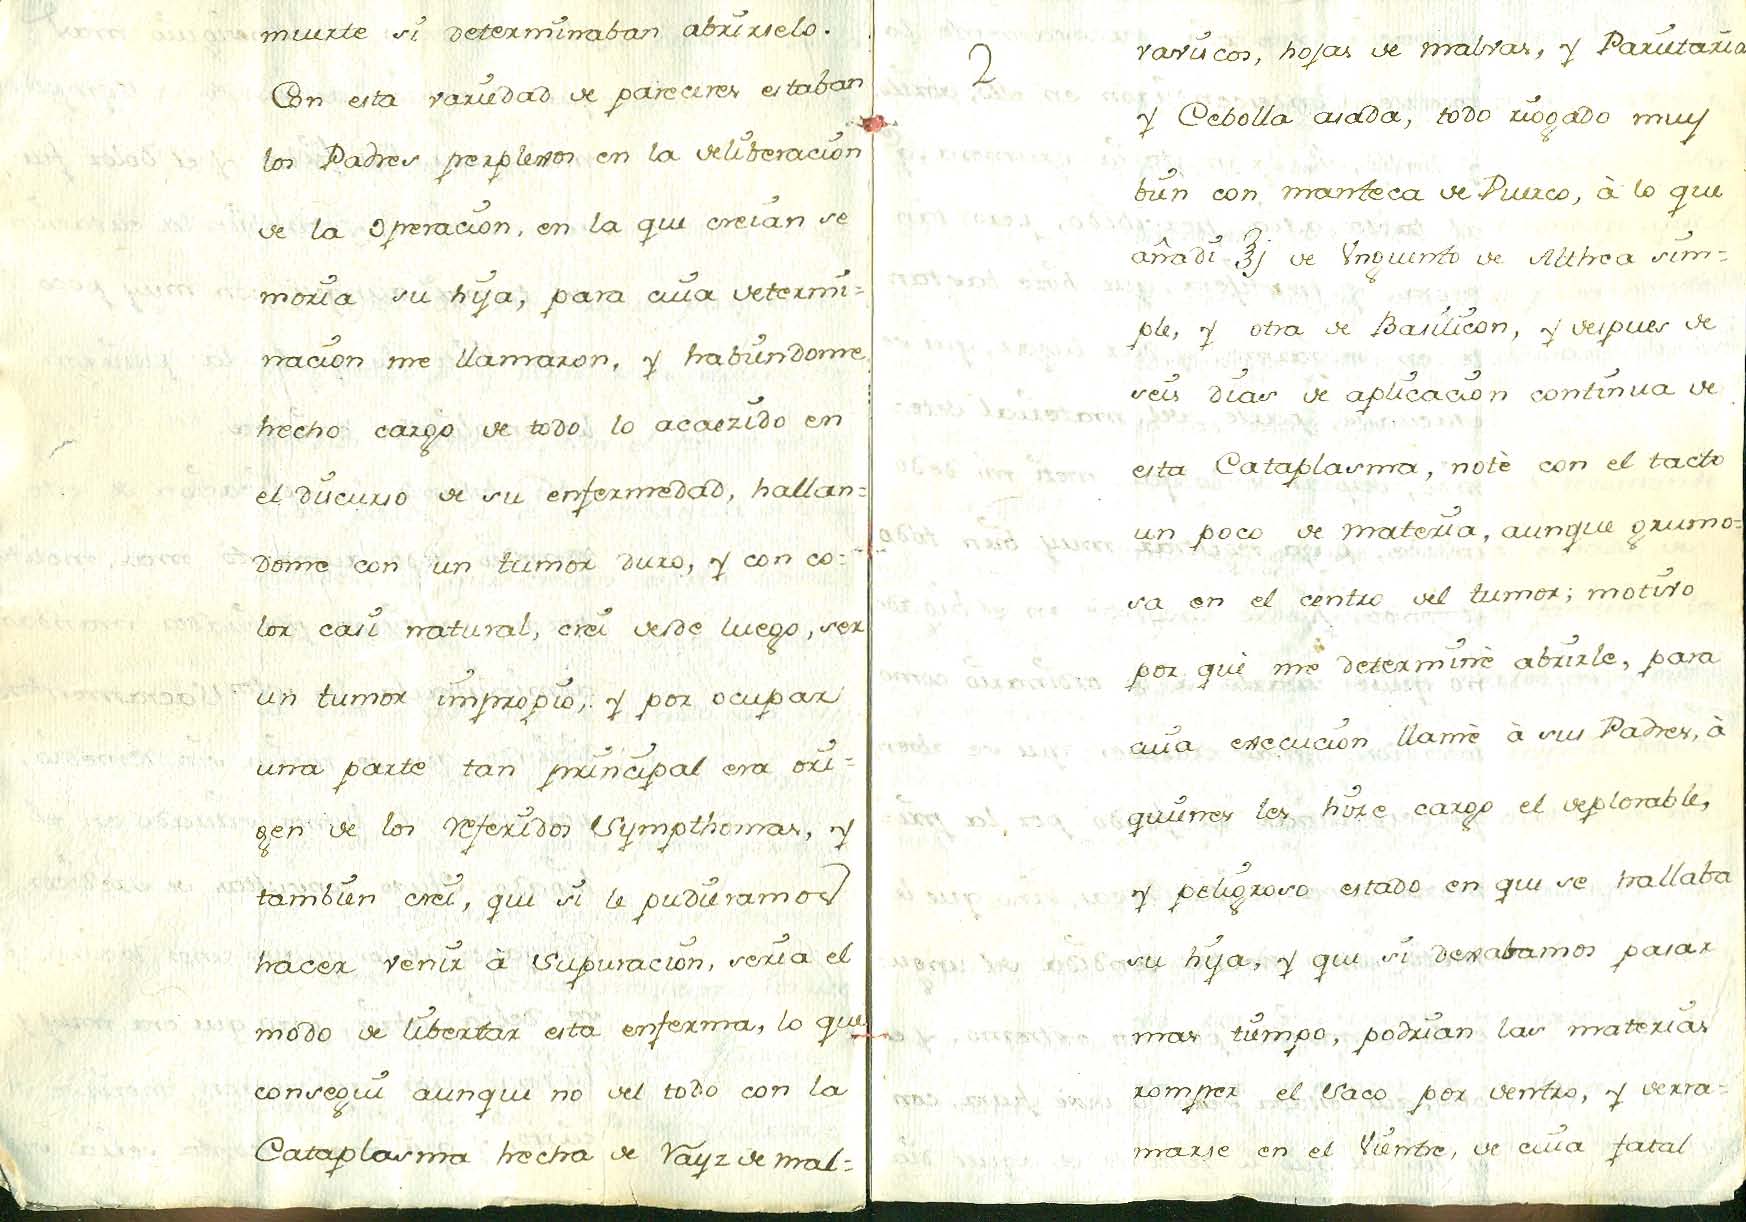 muerte si determinaban abrirselo.
Con esta variedad de pareceres estaban
los Padres perplexos en la deliberacion
de la Operacion, en la que creian se
moria su hija, para cuia determi=
nacion me llamaron, y habiendome
hecho cargo de todo lo acaezido en
el discurso de su enfermedad, hallan=
dome con un tumor duro, y con co=
lor casi natural, crei desde luego, ser
un tumor impropio, y por ocupar
una parte tan principal era ori=
gen de los referidos Sympthomas, y
tambien crei, que si le pudieramos
hacer venir à Supuracion, seria el
modo de libertar esta enferma, lo que
consegui aunque no del todo con la
Cataplasma hecha de Rayz de mal=
2
vaviscos, hojas de malvas, y Parietaria
y Cebolla asada, todo riogado muy
bien con manteca de Puerco, à lo que
añadi ℥j de Vnguento de Althea sim=
ple, y otra de Basilicon, y despues de
seis dias de aplicacion continua de
esta Cataplasma, notè con el tacto
un poco de materia, aunque grumo=
sa en el centro del tumor; motivo
por què me determinè abrirle, para
cuia execucion llamè à sus Padres, à
quienes les hize cargo el deplorable,
y peligroso estado en que se hallaba
su hija, y que si dexabamos pasar
mas tiempo, podrian las materias
romper el Saco por dentro, y derra=
marse en el Vientre, de cuia fatal